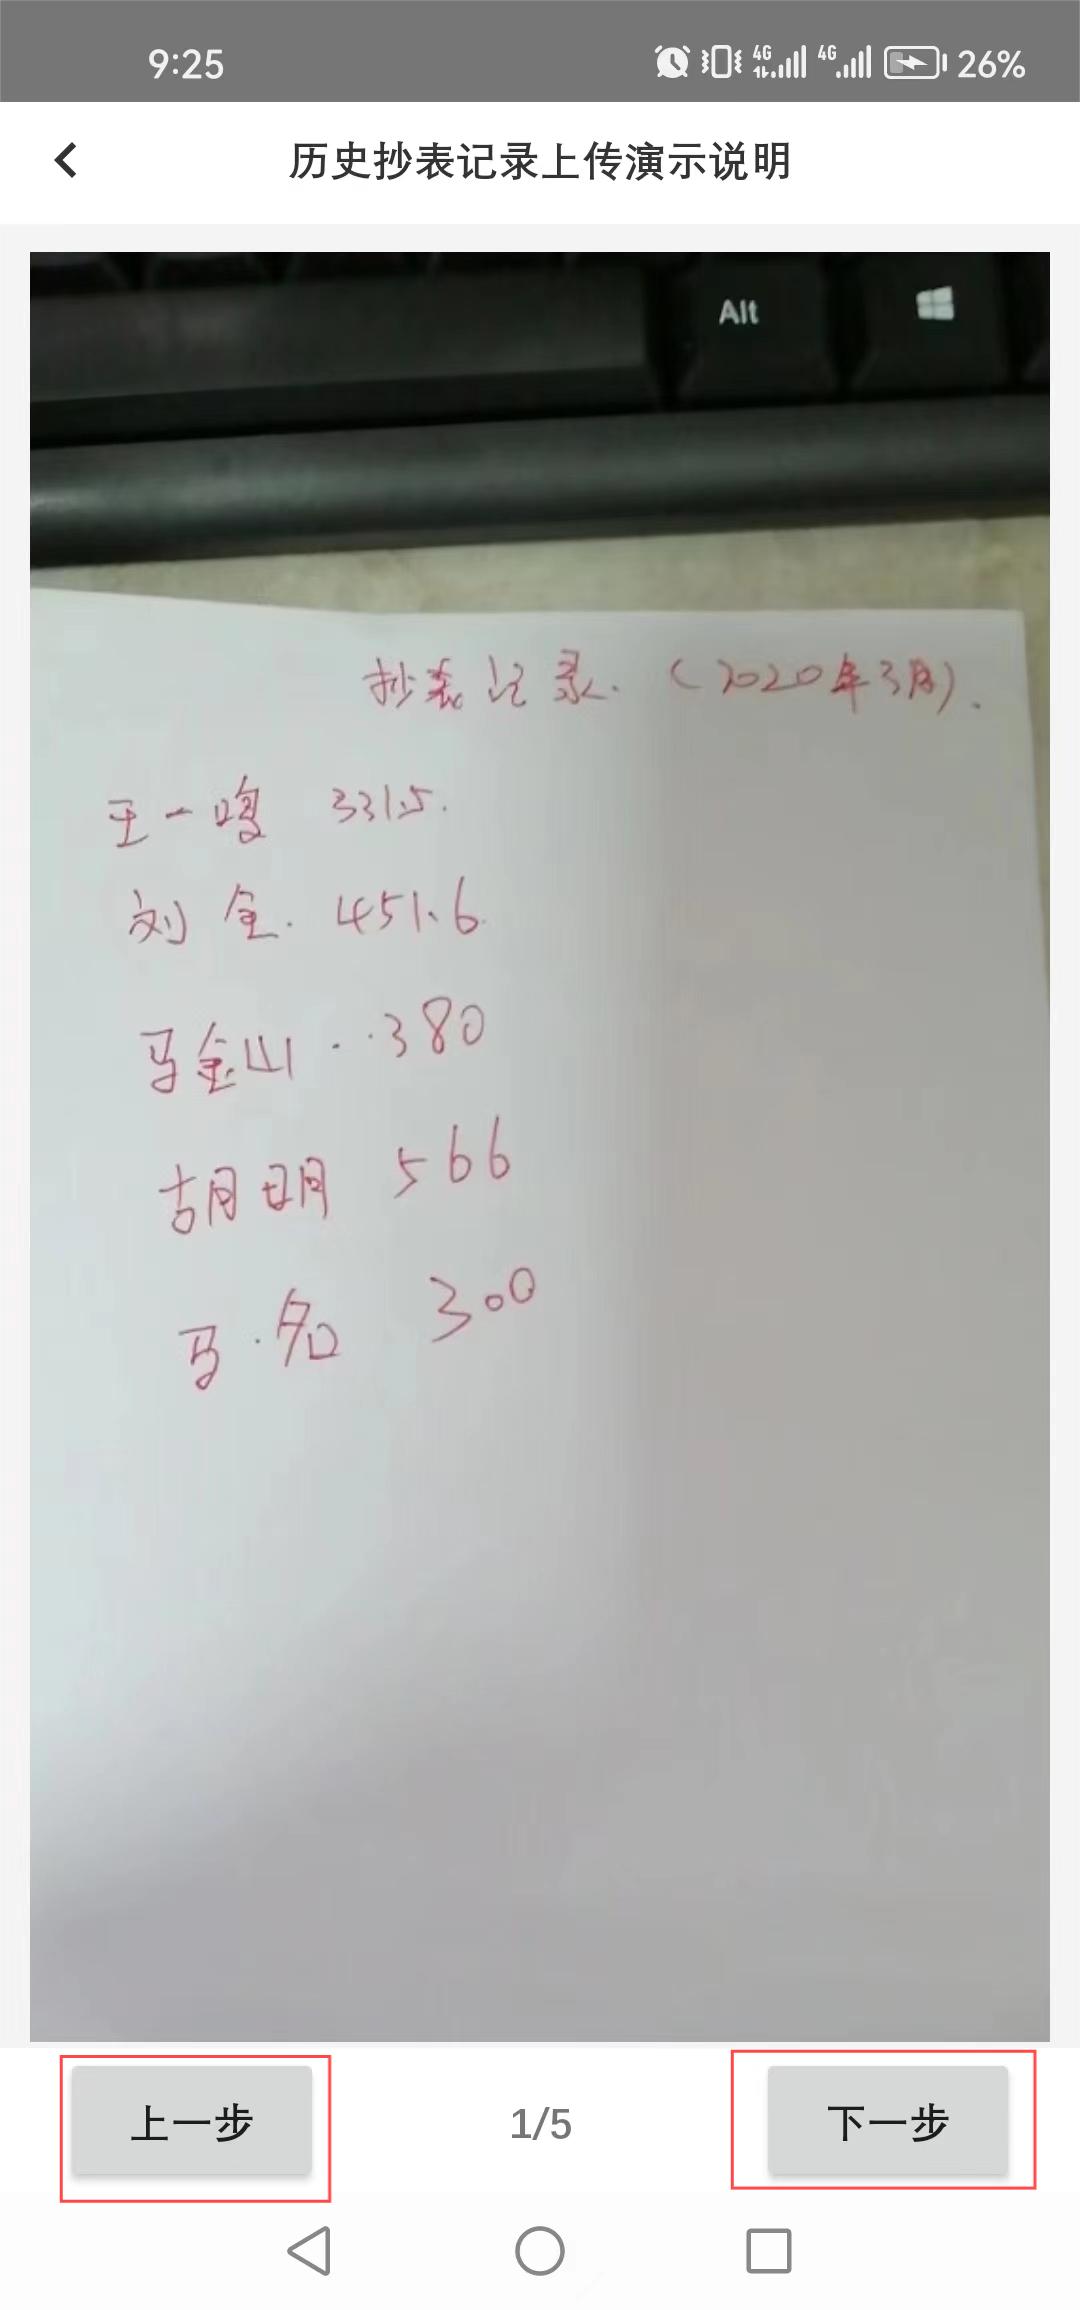 9:25 4G 4G 26%
历史抄表记录上传演示说明
Alt
抄表记录.（2020年3月）.
王一鸣 331.5.
刘全. 451.6.
马金山..380
胡明 566
马.名 300
上一步 1/5 下一步